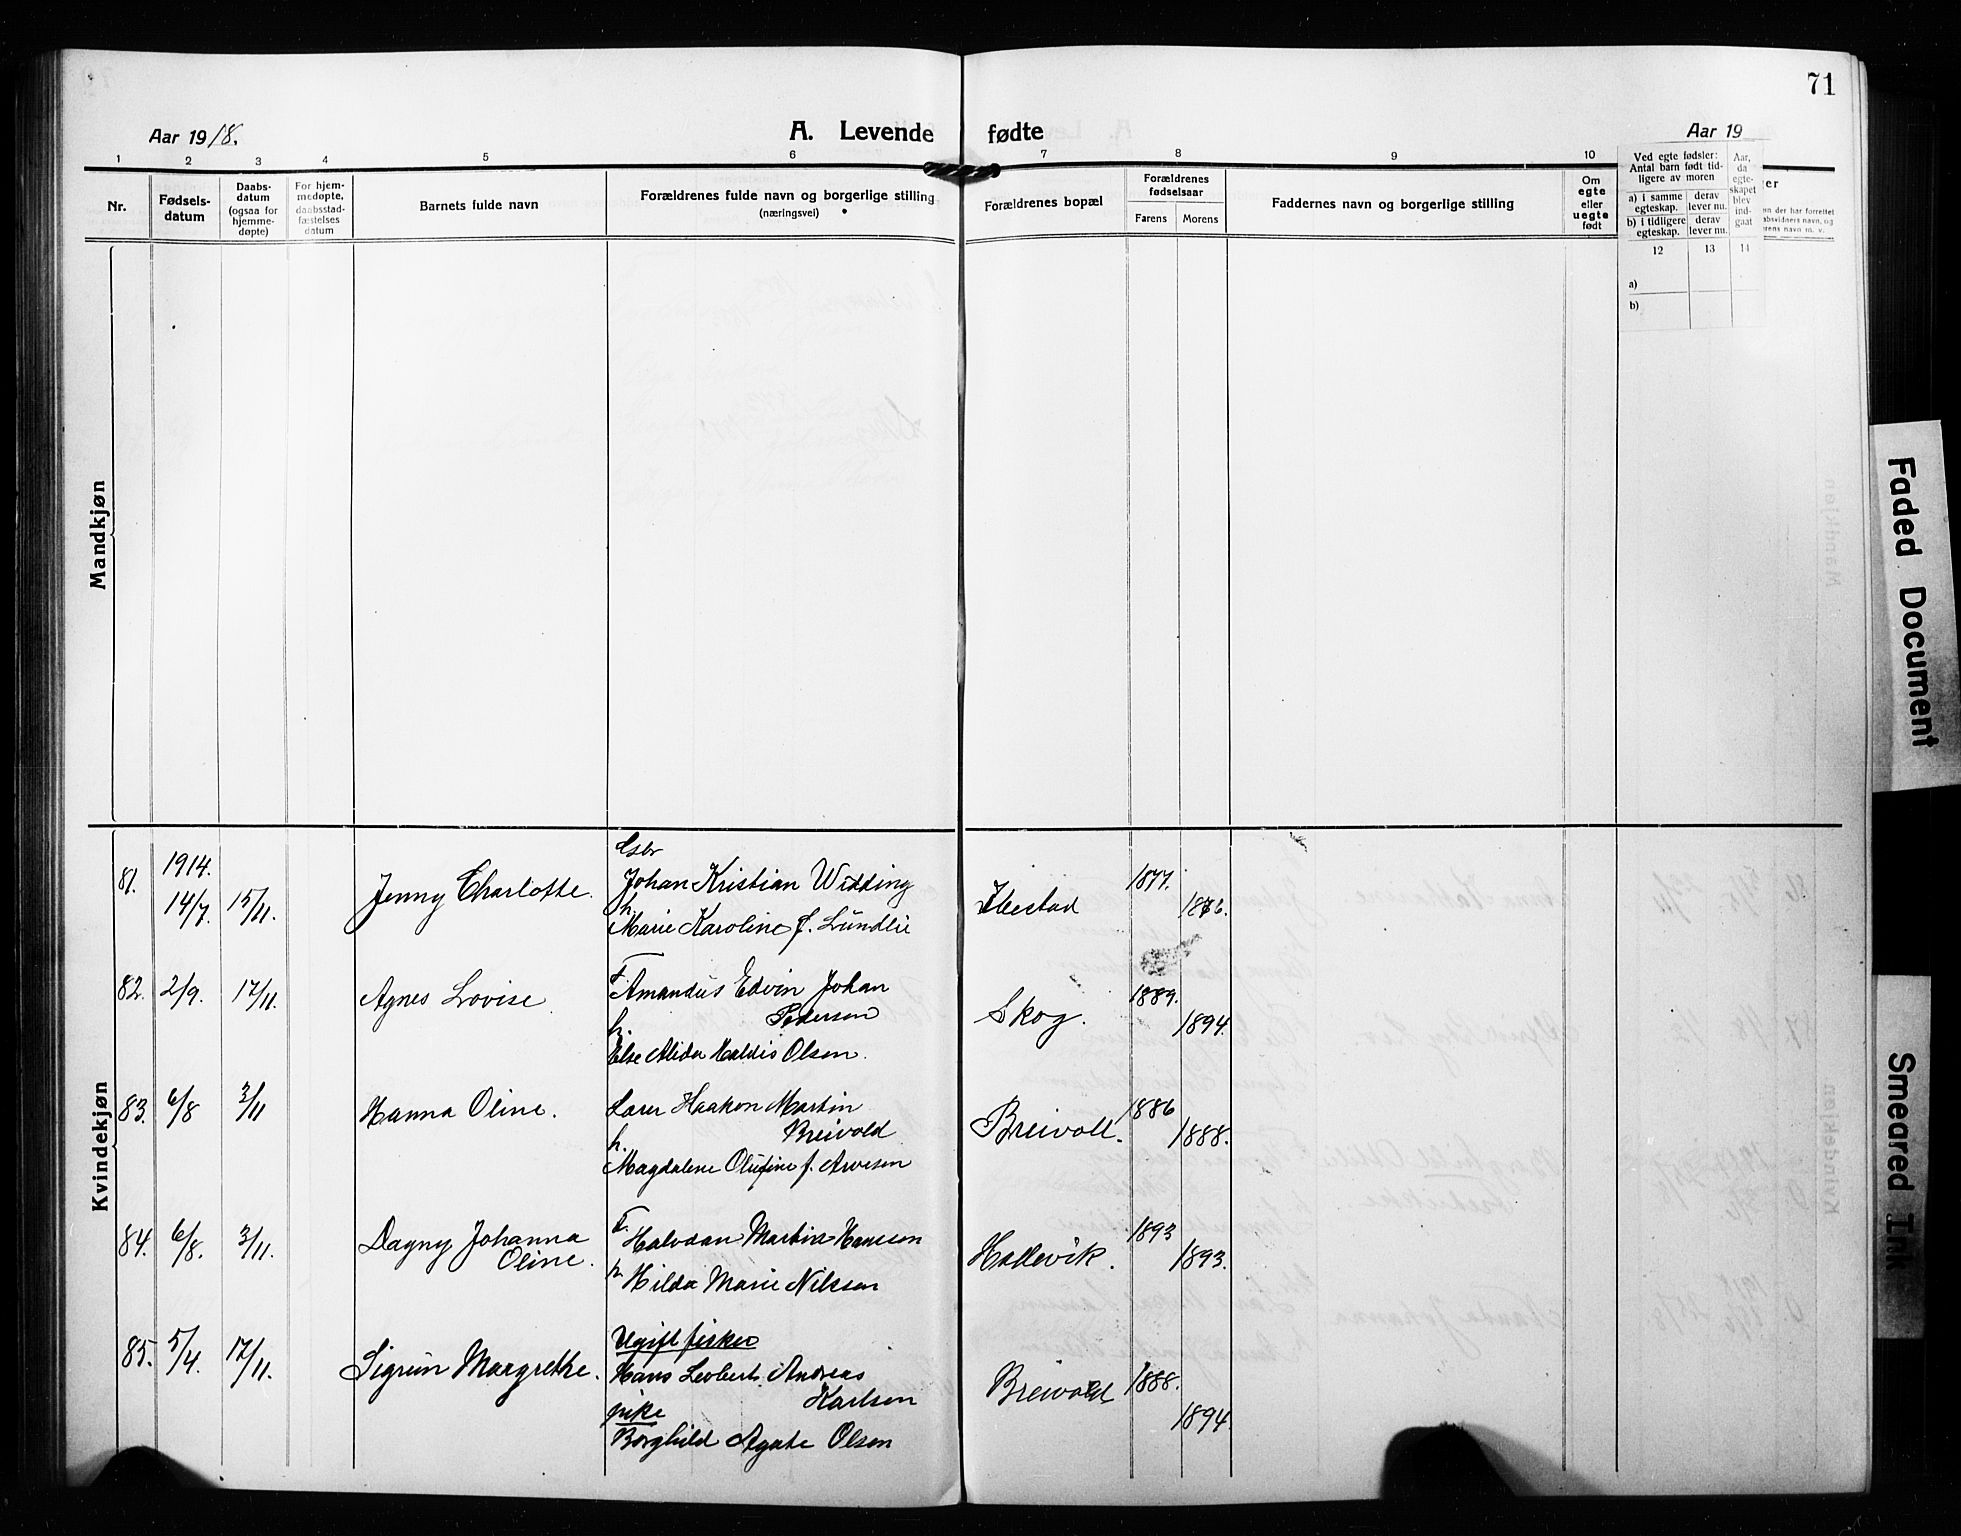 71
Aar 1918.
A. Levende fødte
Aar 19
1 2 3 4 5 6 7 8 9 10
Nr.
Fødsels-
datum
Daabs-
datum
(ogsaa for
hjemme-
døpte)
For hjem-
medøpte,
daabsstad-
fæstelses
datum
Barnets fulde navn
Forældrenes fulde navn og borgerlige stilling
(næringsvei)
Forældrenes bopæl
Forældrenes
fødselsaar
Farens Morens
Faddernes navn og borgerlige stilling
Om
egte
eller
uegte
født
Ved egte fødsler:
Antal barn født tid-
ligere av moren
a) i samme
egteskap.
derav
lever nu.
b) i tidligere
egteskap.
derav
lever nu.
Aar,
da
egte-
skapet
blev
ind-
gaat
12 13 14
a)
b)
Mandkjøn
Kvindekjøn
81.
1914.
14/7.
15/11.
Jenny Charlotte.
Johan Kristian Widding
h.
Marie Karoline f. Lundli
Ibestad
1877.
1876.
82.
2/9.
17/11.
Agnes Lovise
F. Amandus Edvin Johan
Pedersen
h.
Else Alida Haldis Olsen.
Skog.
1889.
1894.
83.
6/8
3/11
Hanna Oline.
Lærer Haakon Martin
Breivold
h.
Magdalene Olufine f. Arvesen
Breivoll.
1886
1888.
84.
6/8.
3/11.
Dagny Johanna
Oline.
F.
Halvdan Martin Hansson
h
Hilda Marie Nilssen
Hallevik.
1893
1893.
85.
5/4.
17/11.
Sigrun Margrethe.
Ugift fisker
Hans Leobert Andreas
Karlsen
pike
Borghild Agate Olsen
Breivold
1888.
1894
Faded Document
Smeared Ink